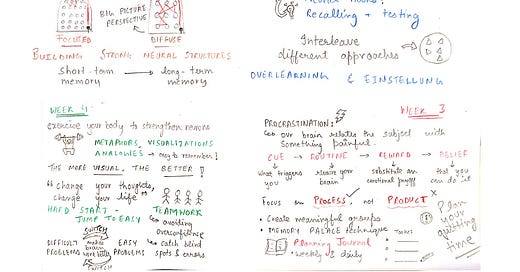 BIG PICTURE
PERSPECTIVE
FOCUSED
DIFFUSE
BUILDING STRONG NEURAL STRUCTURES
short-term memory → long-term memory
Recalling + testing
Interleave
different approaches
OVERLEARNING & EINSTELLUNG
WEEK 4:
exercise your body to strengthen neurons
METAPHORS, VISUALIZATIONS
ANALOGIES → easy to remember!
THE MORE VISUAL, THE BETTER!
"change your thoughts,
change your life"
HARD START -
JUMP TO EASY
SWITCH
DIFFICULT
PROBLEMS
makes
brain
work
EASY
PROBLEMS
SWITCH
TEAMWORK
avoiding
overconfidence
catch blind
spots & errors.
WEEK 3
PROCRASTINATION:
our brain relates the subject with
something painful.
CUE → ROUTINE → REWARD → BELIEF
what triggers
you
your
brain
substitute an
emotional payoff
that you
can do it
Focus on PROCESS, not PRODUCT
• Create meaningful groups
• MEMORY PALACE technique
Planning Journal
• weekly & daily
Tasks
Plan
your
quitting
time